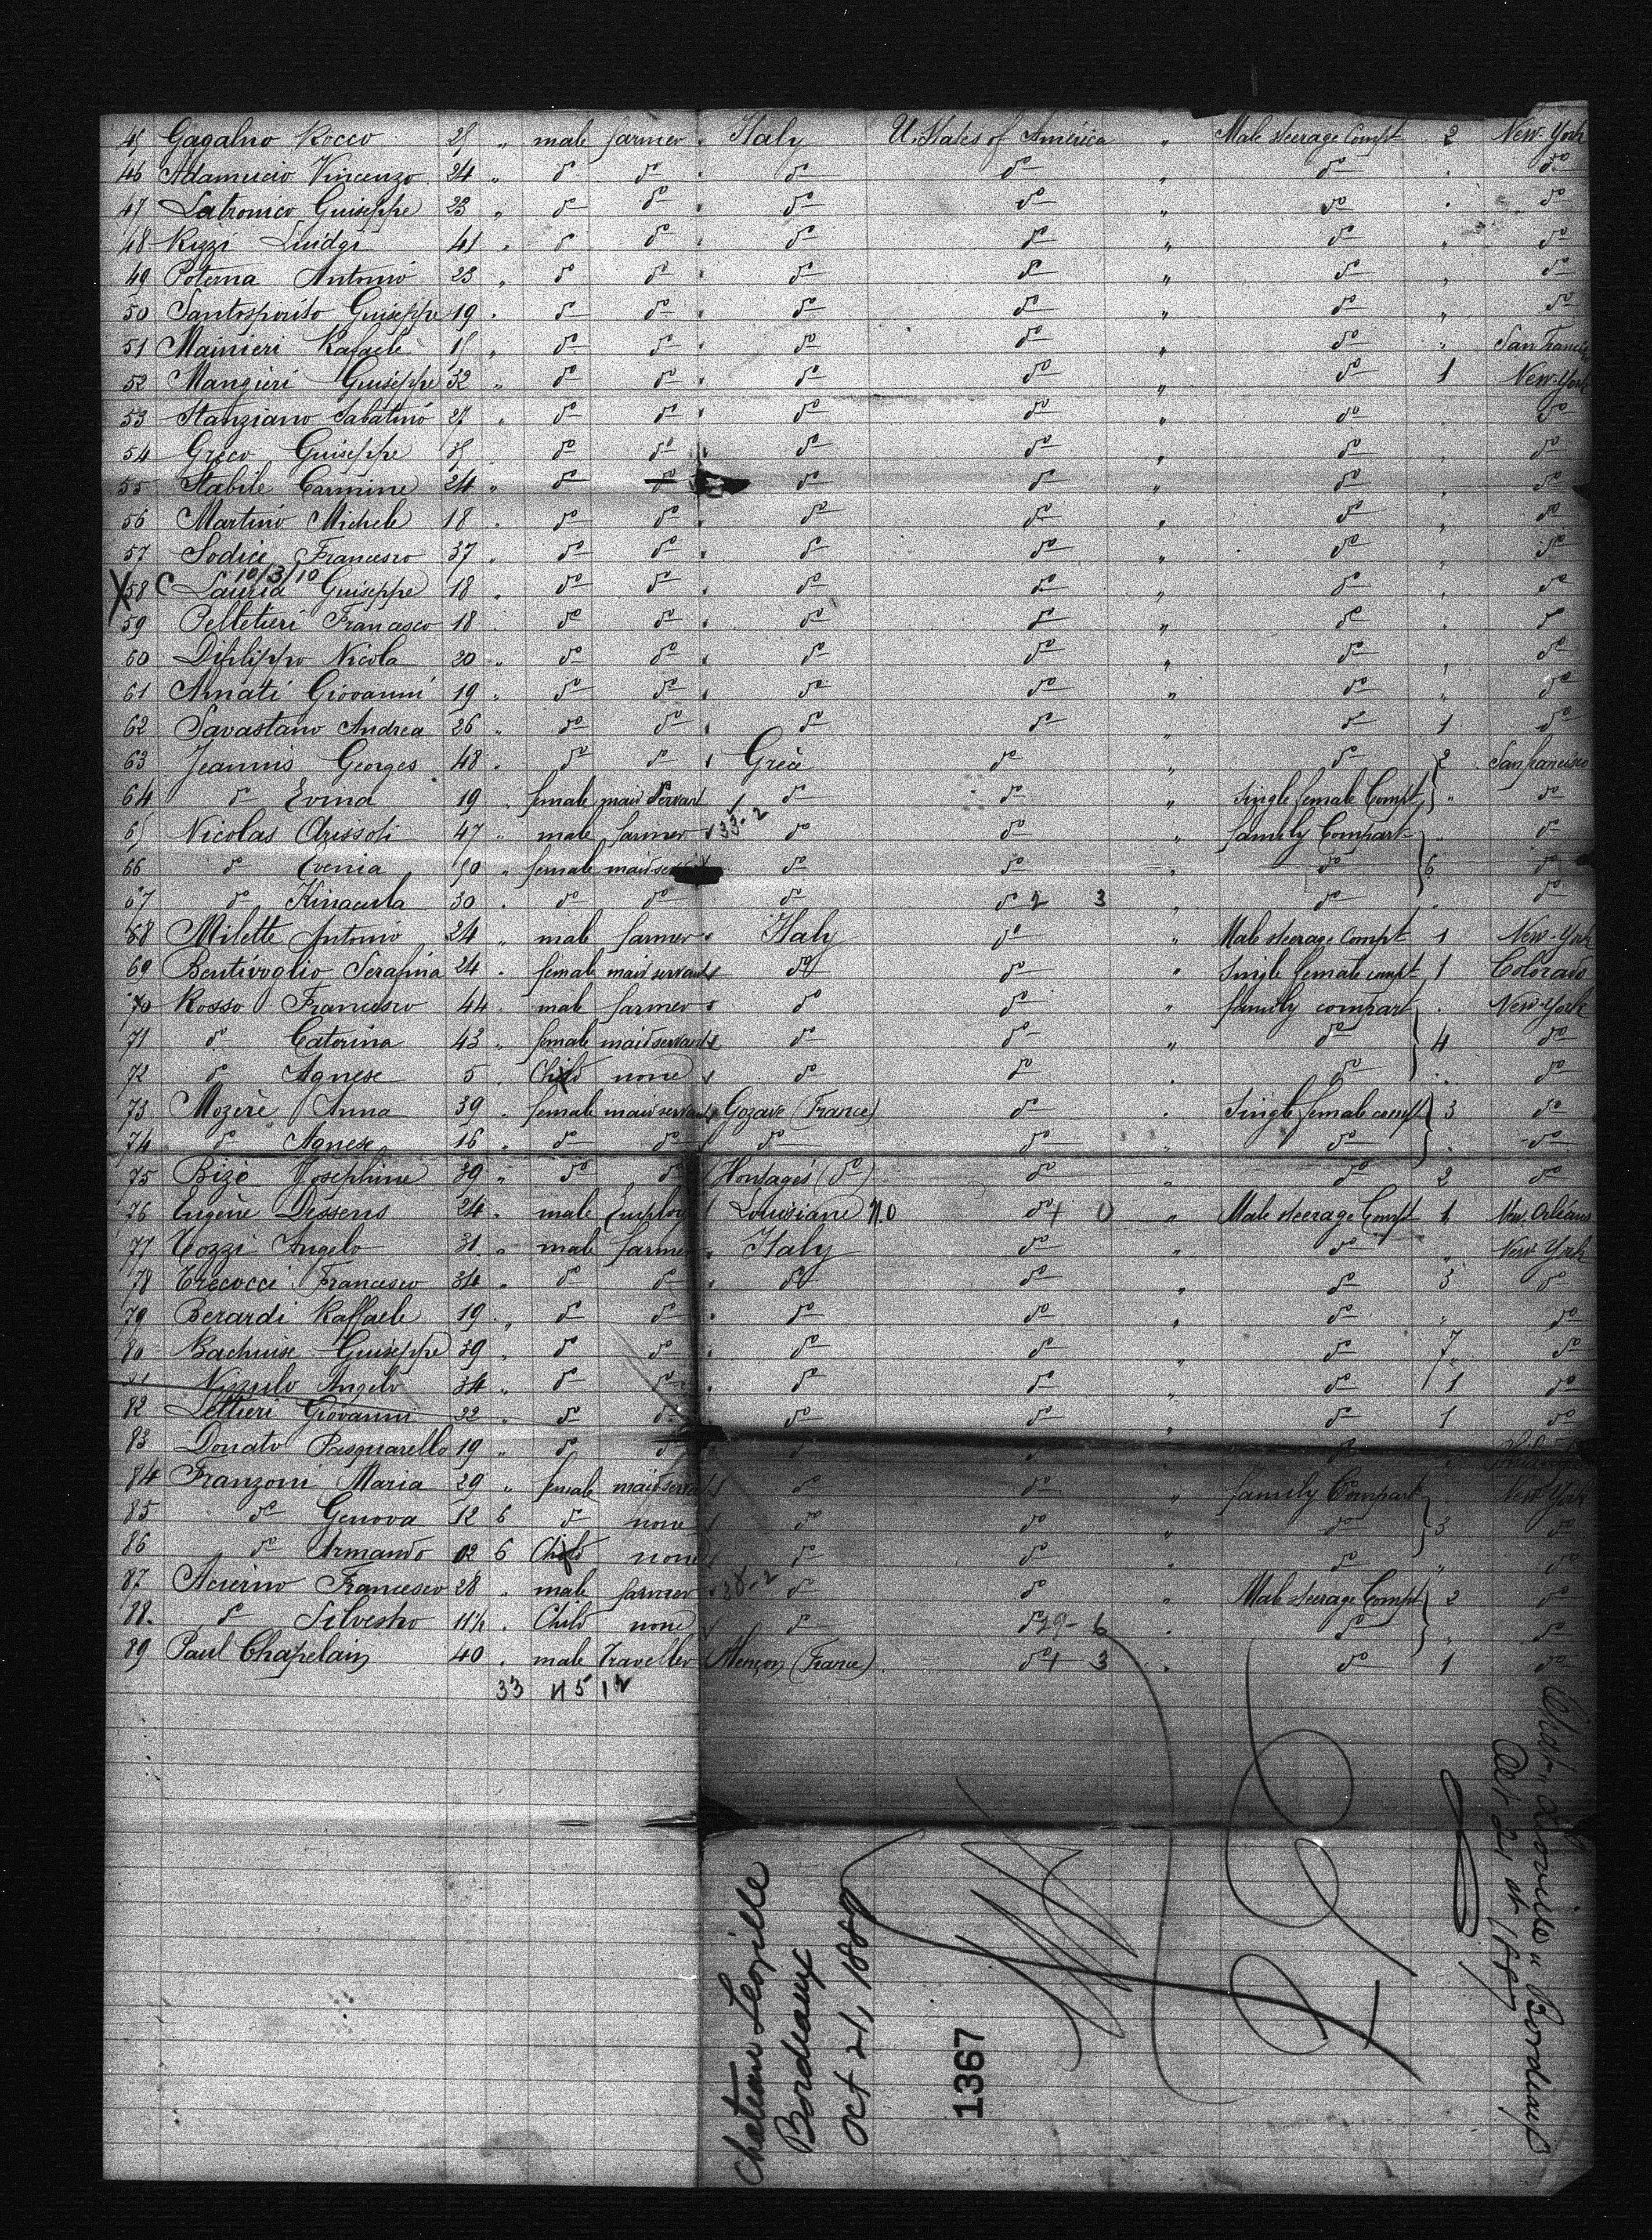 45 Gagalno Rocco 25 " male farmer Italy U. States of América " Male steerage Compt 2 New-York
46 Adamucio Vincenzo 24 " do do do do " do . do
47 Latronico Guiseppe 23 " do do do do " do . do
48 Rizzi Luidgi 41 . do do do do " do . do
49 Poterna Antonio 23 " do do do do " do . do
50 Santospirito Guiseppe 19 . do do do do " do " do
51 Mainieri Rafaele 15 " do do do do " do " San Francis
52 Mangieri Guiseppe 32 " do do do do " do 1 New-York
53 Stanziano Sabatino 27 . do do do do " do . do
54 Gréco Guiseppe 35 do do do do " do . do
55 Stabile Carmine 24 " do do do do " do . do
56 Martino Michele 18 . do do do do " do " do
57 Sodici Francesco 37 " do do do do " do " do
10/3/10
X 58 C Lauria Guiseppe 18 . do do do do " do . do
59 Pelletieri Francesco 18 . do do do do " do . do
60 Difilippo Nicola 20 " do do do do " do . do
61 Amati Giovanni 19 . do do do do " do . do
62 Savastano Andrea 26 " do do do do " do 1 do
63 Jeannis Georges 48 . do do Grèce do " do 2 San francisco
64 do Evina 19 . female maid Servant do do " Single female Compt " do
65 Nicolas Arissoti 47 " male farmer 33-2 do do family Compart . do
66 do Evenia 50 " female maid do do " do 6 do
67 do 30 . do do do do 2 3 " do . do
68 Milette Antonio 24 " male farmer Italy do " Male steerage Compt 1 New-York
69 Bentivoglio Serafina 24 . female maid servant do do " Single female compt 1 Colorado
70 Rosso Francesco 44 . male farmer do do " family compart . New-York
71 do Catorina 43 " female maid servant do do " do 4 do
72 do Agnese 5 . Child none do do . do . do
73 Mozerè Anna 39 . female maid servant Gozave (France) do . Single female compt 3 do
74 do Agnese 16 " do do do do " do . do
75 Bizè Josephine 39 " do do (do) do " do 2 do
76 Eugène Dessens 24 . male Employ Louisiane N.O do + 0 " Male steerage Compt 1 New. Orléans
77 Cozzi Angelo 31 " male farmer Italy do " do " New York
78 Trecocci Francesco 34 " do do do do " do 3 do
79 Berardi Raffaele 19 " do do do do " do " do
80 Bachuise Guiseppe 39 " do do do do " do 7 do
81 Angelo 34 " do do do do " do 1 do
82 Lettieri Giovanni 22 " do do do do " do 1 do
83 Donato Pasquarello 19 " do do do do . do .
84 Franzoni Maria 29 " female maid servant do do " family Compart . New York
85 do Genova 12 6 do none do do " do 3 do
86 do Armando 02 6 Child none do do . do " do
87 Acierno Francesco 28 " male farmer 38-2 do do " Male steerage Compt 2 do
88. do Silvestro 11½ . Child none do do 29-6 . do . do
89 Paul Chapelain 40 . male Traveller Alençon (France) do + 3 . do 1 do
33 45 12
Chateau Leoville
Bordeaux
Oct 21, 1889
1367
Bordeaux
Oct 21 st 1889